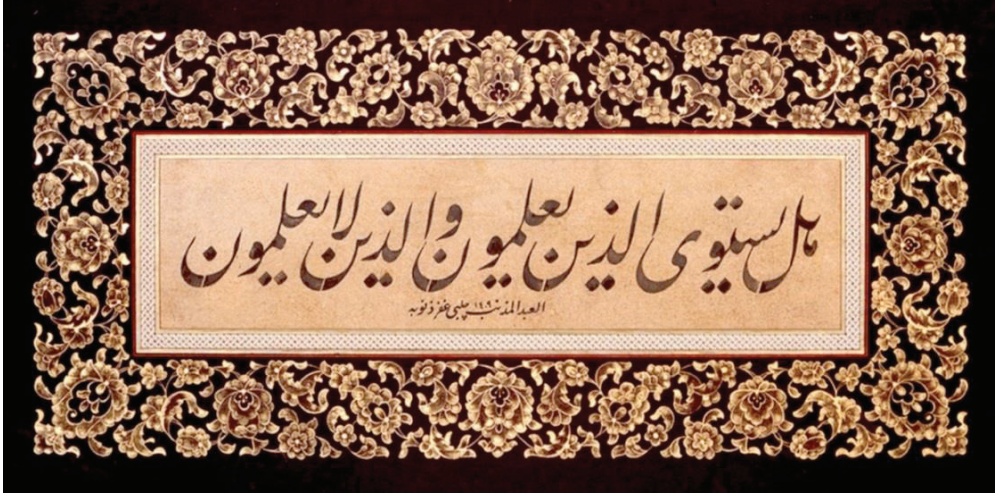 هل يستوى الذين يعلمون والذين لا يعلمون
العبد المذنب چلبى غفر ذنوبه ١٤٠٩